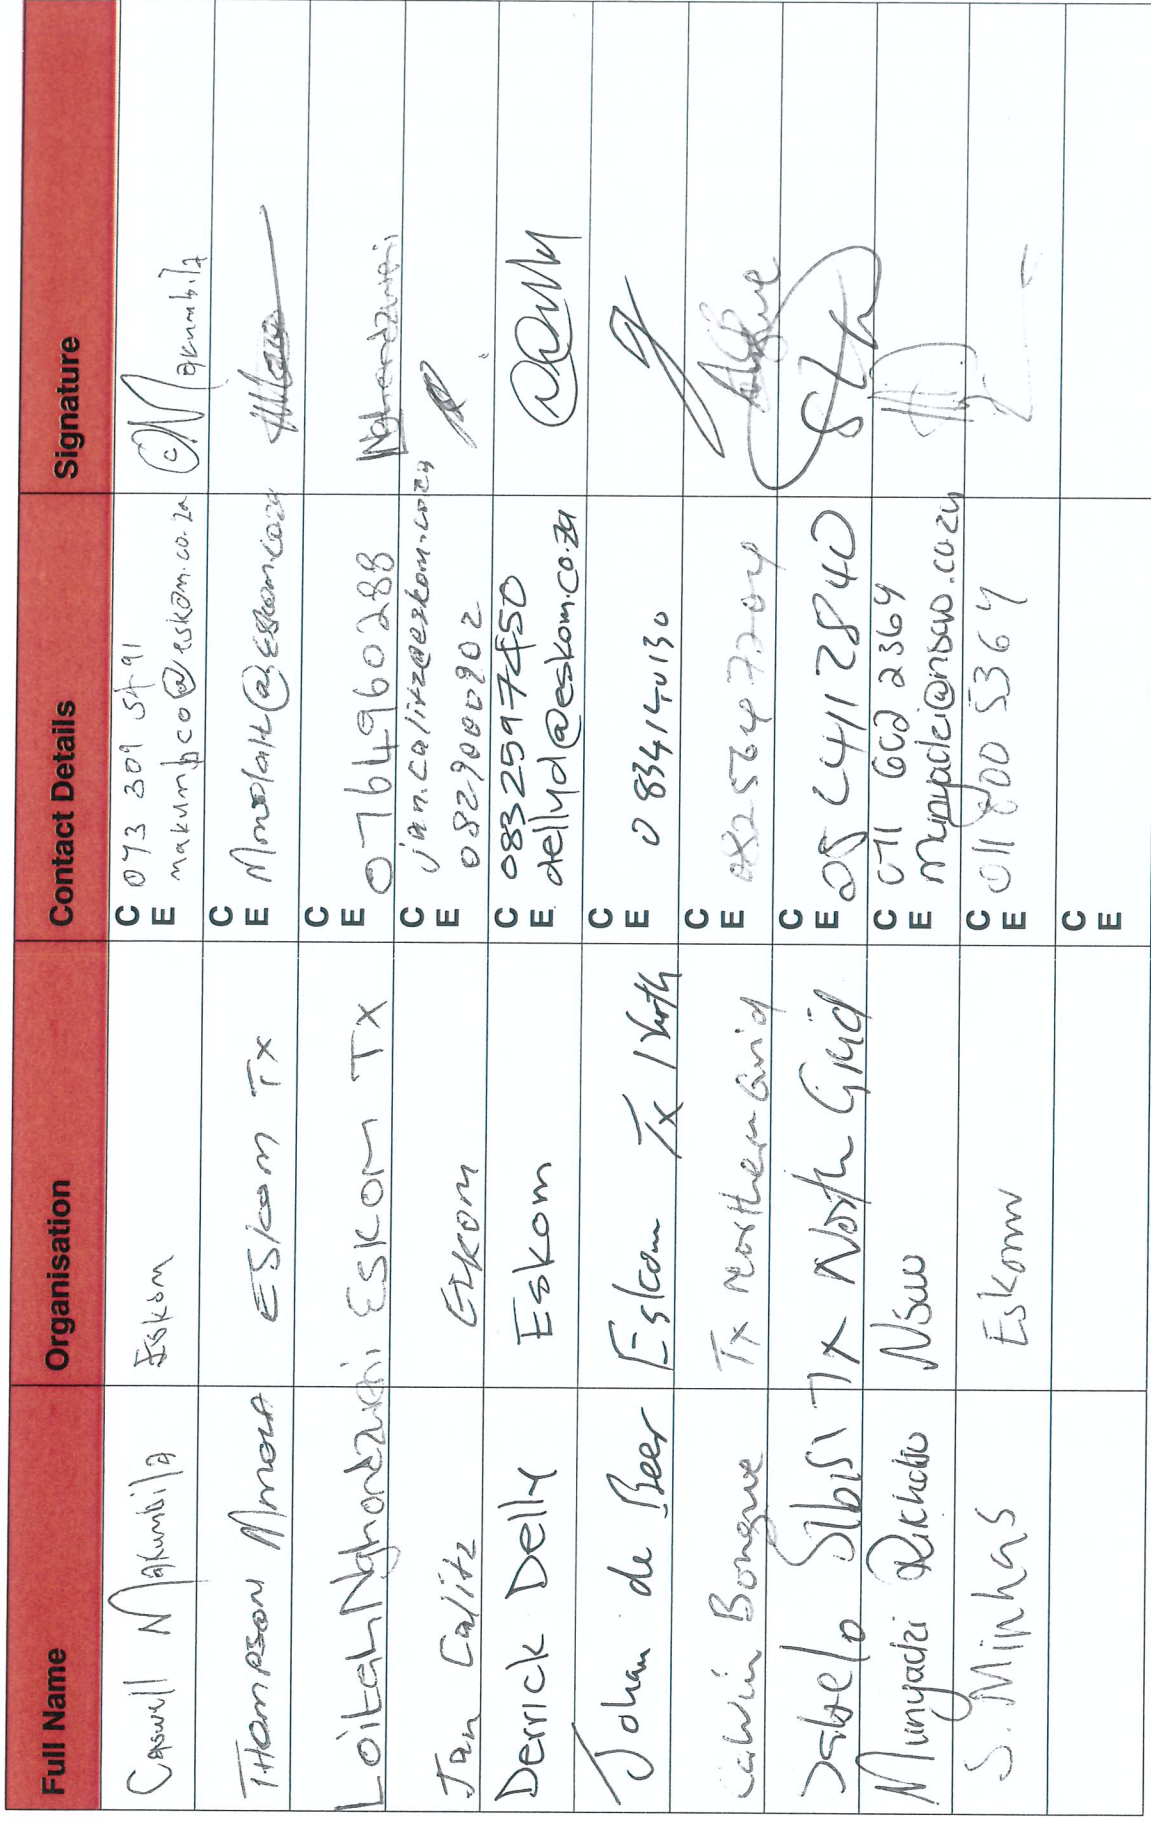 Full Name Organisation Contact Details Signature
Caswell Makumbila Eskom C 073 309 5491 Makumbila
E makumbco@eskom.co.za
THOMPSON MMOLA ESkom TX C
E MmolaHt@eskom.co.za
Loitah Nghondzweni ESKOM TX C Nghondzweni
E 0764960288
Jan Calitz Eskom C jan.calitz@eskom.co.za
E 0829000902
Derrick Delly Eskom C 0832597450
E dellyd@eskom.co.za
Johan de Beer Eskom Tx North C
E 0834140130
Calvin Bongwe Tx Northern Grid C
E 0825647204
Jabelo Sibisi Tx North Grid C
E
Munyadzi Rikhotso Nsovo C
E munyadzi@nsovo.co.za
S. Miphas Eskom C 011 800 5364
E
C
E